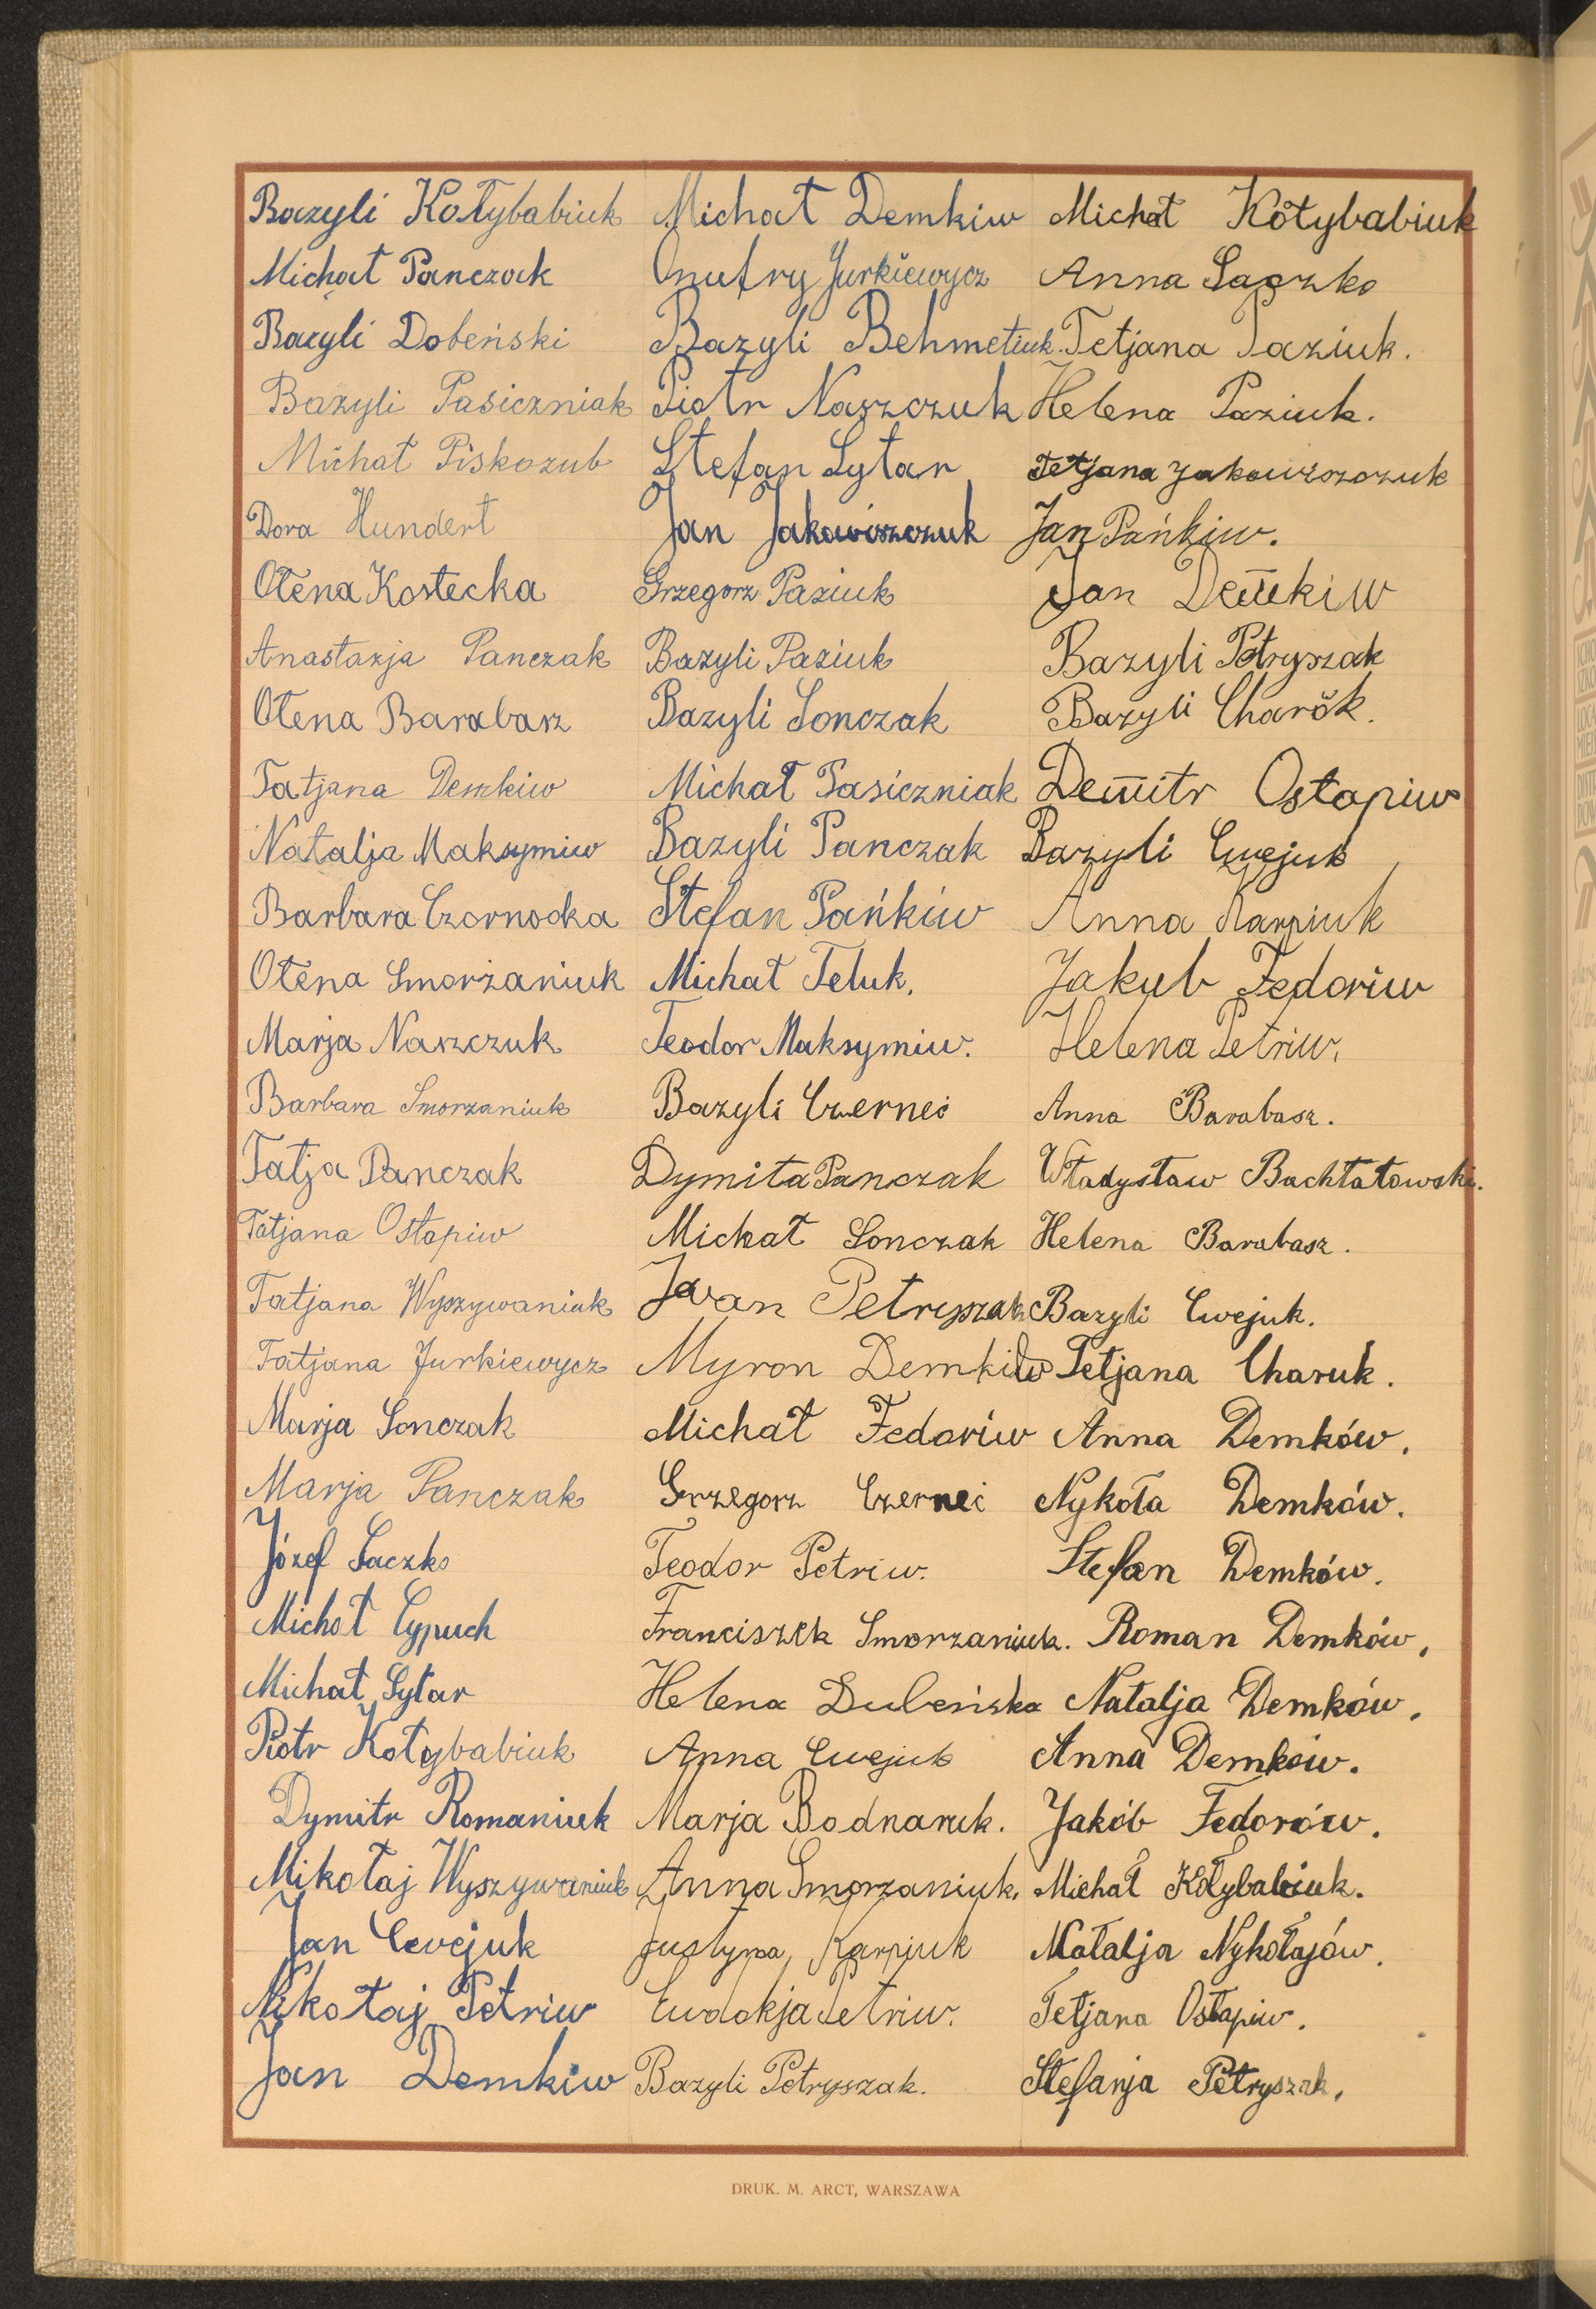 Bazyli Kołybabiuk
Michał Panczak
Bazyli Dobeński
Bazyli Pasieczniak
Michał Piskozub
Dora Hundert
Ołena Kostecka
Anastazja Panczak
Ołena Barabasz
Tatjana Demkiw
Natalja Maksymiw
Barbara Czornooka
Ołena Smorżaniuk
Marja Naszczuk
Barbara Smorzaniuk
Tatja Panczak
Tatjana Ostapiw
Tatjana Wyszywaniuk
Tatjana Jurkiewycz
Marja Sonczak
Marja Panczak
Józef Saczko
Michał Cypuch
Michał Sytar
Piotr Kołybabiuk
Dymitr Romaniuk
Mikołaj Wyszywaniuk
Jan Cwejuk
Mikołaj Petriw
Jan Demkiw
Michał Demkiw
Onufry Jurkiewycz
Bazyli Behmetiuk.
Piotr Naszczuk
Stefan Sytar
Jan Jakowiszczuk
Grzegorz Paziuk
Bazyli Paziuk
Bazyli Sonczak
Michał Pasiczniak
Bazyli Panczak
Stefan Pańkiw
Michał Teluk.
Teodor Maksymiw.
Bazyli Czerneć
Dymita Panczak
Michał Sonczak
Jwan Petryszak
Myron Demkiw
Michał Fedoriw
Grzegorz Czerneć
Teodor Petriw.
Franciszek Smorzaniuk.
Helena Dubeńska
Anna Cwejuk
Marja Bodnaruk.
Anna Smorzaniuk.
Justyna Karpiuk
Ewdokja Petriw.
Bazyli Petryszak.
Michał Kołybabiuk
Anna Saczko
Tetjana Paziuk.
Helena Paziuk.
Tetjana Jakowiszczuk
Jan Pańkiw.
Jan Demkiw
Bazyli Petryszak
Bazyli Charŏk.
Demitr Ostapiw
Bazyli Cwejuk
Anna Karpiuk
Jakub Fedoriw
Helena Petriw.
Anna Barabasz.
Władysław Bachtałowski.
Helena Barabasz.
Bazyli Cwejuk.
Tetjana Charuk.
Anna Demków.
Nykoła Demków.
Stefan Demków.
Roman Demków.
Natalja Demków.
Anna Demków.
Jakób Fedorów.
Michał Kołybabiuk.
Natalja Nykołajów.
Tetjana Ostapiw.
Stefanja Petryszak.
DRUK. M. ARCT, WARSZAWA